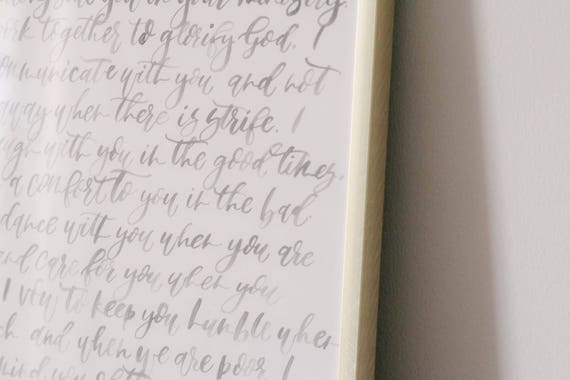 you in your ministry.
together to glorify God. I
communicate with you and not
away when there is strife. I
with you in the good times.
a comfort to you in the bad
dance with you when you are
and care for you when you
I vow to keep you humble when
and when we are poor. I
you